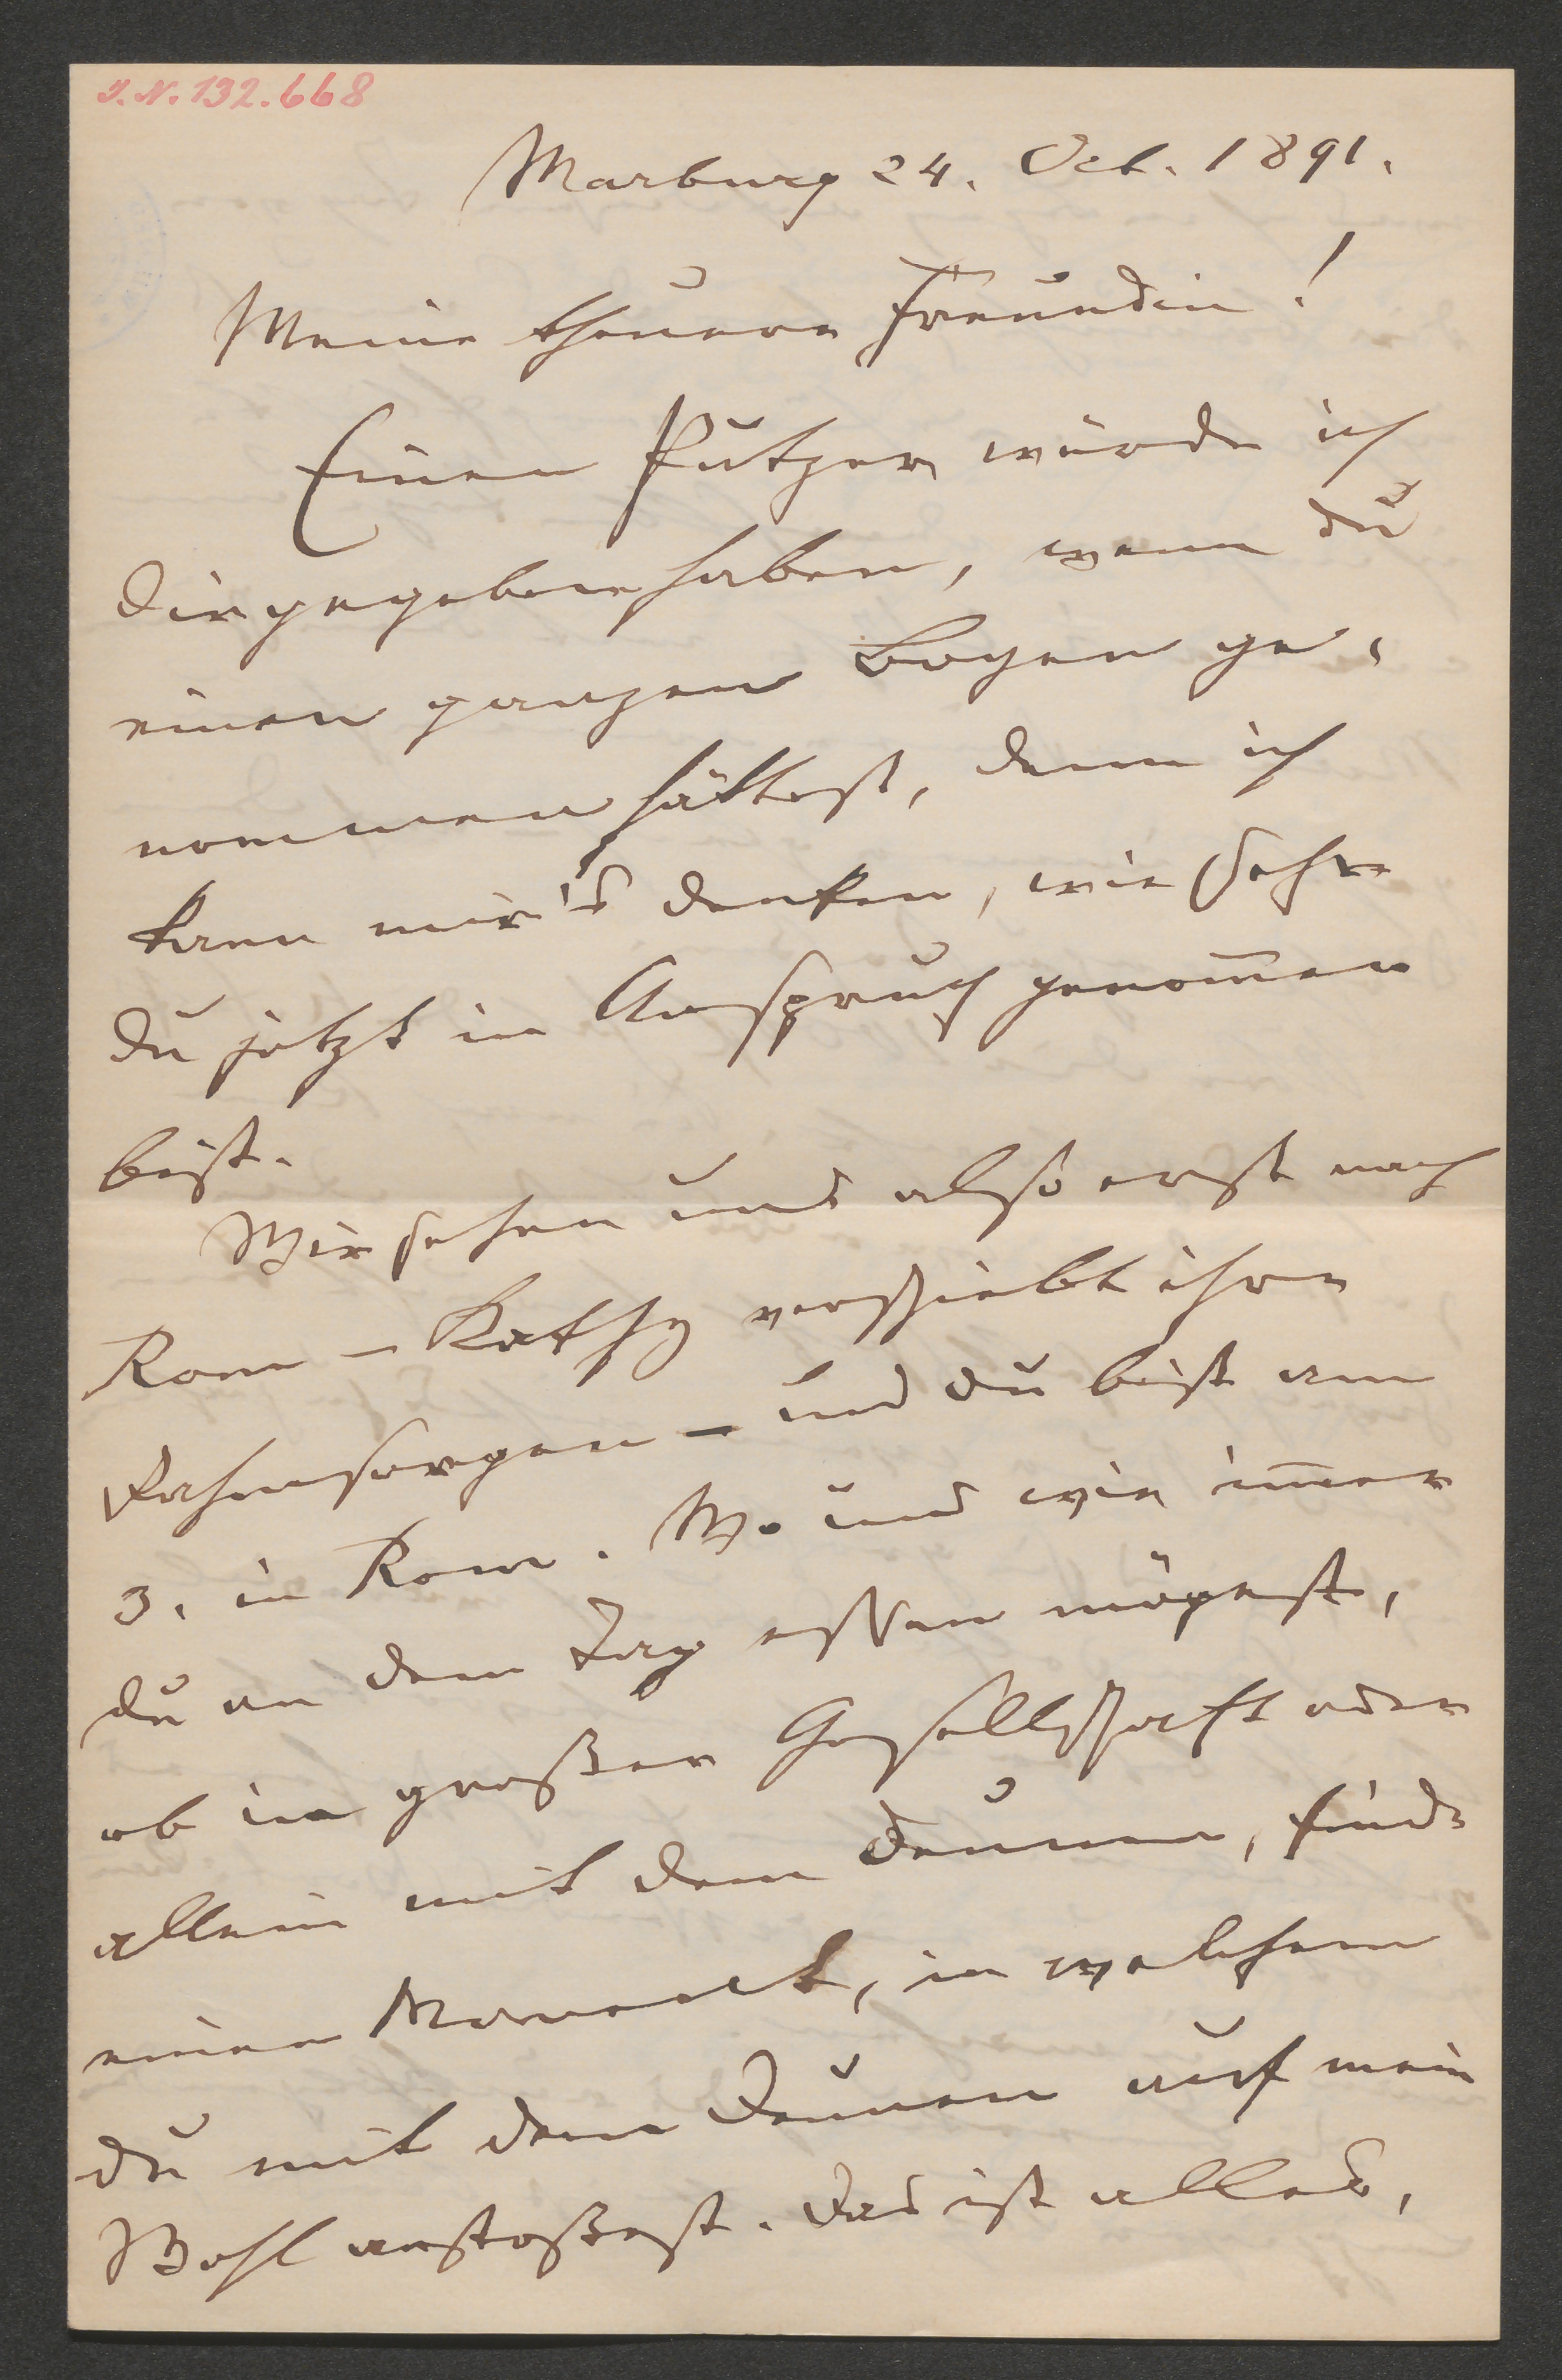 J.N. 132.668
Marburg 24. Oct. 1891.
Meine theuere Freundin!
Einen Putzer würde ich
dir gegeben haben, wenn du
einen ganzen Bogen ge-
nommen hättest, denn ich
kann mir's denken, wie sehr
du jetzt in Anspruch genom̅en
bist.
Wir sehen uns also erst nach
Rom – Kathy verschiebt ihre
– und du bist am
3. in Rom. Wo und wie im̅er
du an dem Tag essen mögest,
ob in großer Gesellschaft oder
allein mit den Deinen, finde
einen Moment, in welchem
du mit den Deinen auf mein
Wohl anstoßest. Das ist alles,